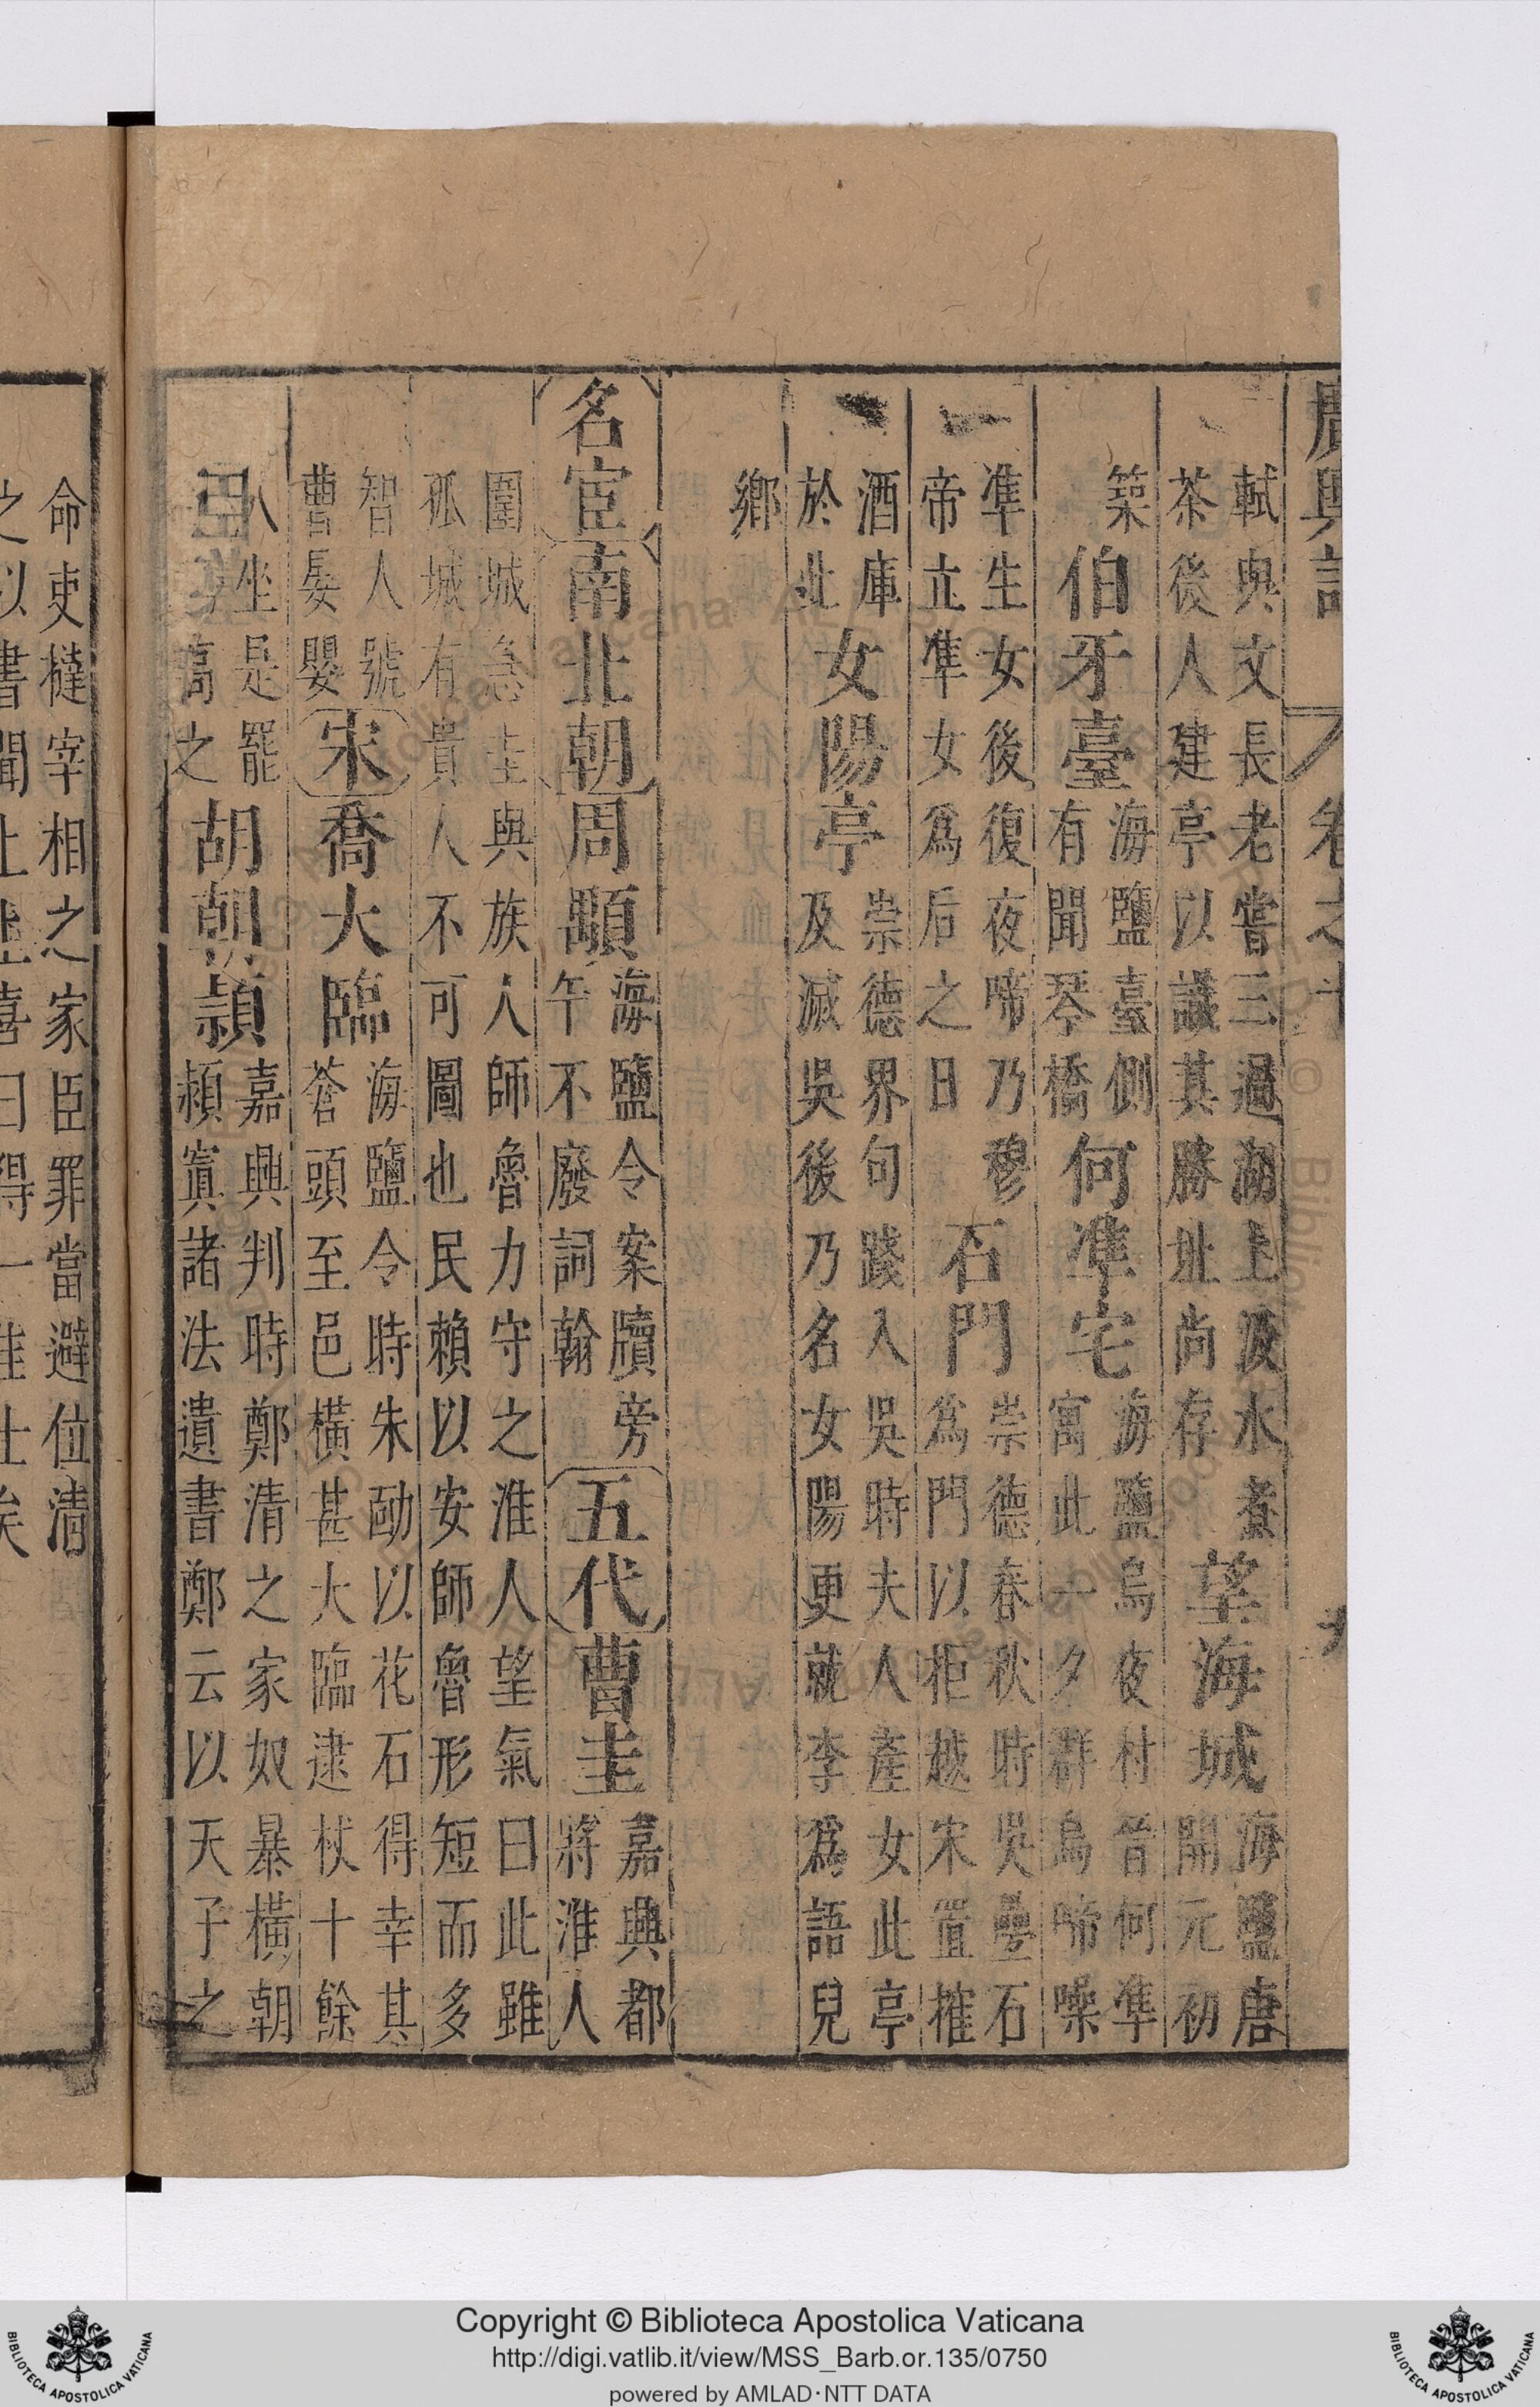 廣輿記 卷之十
軾與文長老嘗三過湖上汲水煮
茶後人建亭以識其勝址尚存望海城海鹽唐
開元初
築伯牙臺海鹽臺側
有聞琴橋何準宅海鹽烏夜村晉何準
寓此一夕群烏啼噪
準生女後復夜啼乃穆
帝立準女為后之日石門崇德春秋時吳壘石
為門以柜越宋置榷
酒庫
於此女陽亭崇德界句踐入吳時夫人產女此亭
及滅吳後乃名女陽更就李為語兒
鄉
名宦南北朝周顒海鹽令案牘旁
午不廢詞翰五代曹圭嘉興都
將淮人
圍城急圭與族人師魯力守之淮人望氣曰此雖
孤城有貴人不可圖也民賴以安師魯形短而多
智人號
曹晏嬰宋喬大臨海鹽令時朱勔以花石得幸其
蒼頭至邑橫甚大臨逮杖十餘
人坐是罷
之胡朝頴嘉興判時鄭清之家奴暴橫朝
頴寘諸法遺書鄭云以天子之
命吏撻宰相之家臣罪當避位清
之以書聞上
Copyright © Biblioteca Apostolica Vaticana
http://digi.vatlib.it/view/MSS_Barb.or.135/0750
powered by AMLAD·NTT DATA
BIBLIOTECA APOSTOLICA VATICANA
BIBLIOTECA APOSTOLICA VATICANA